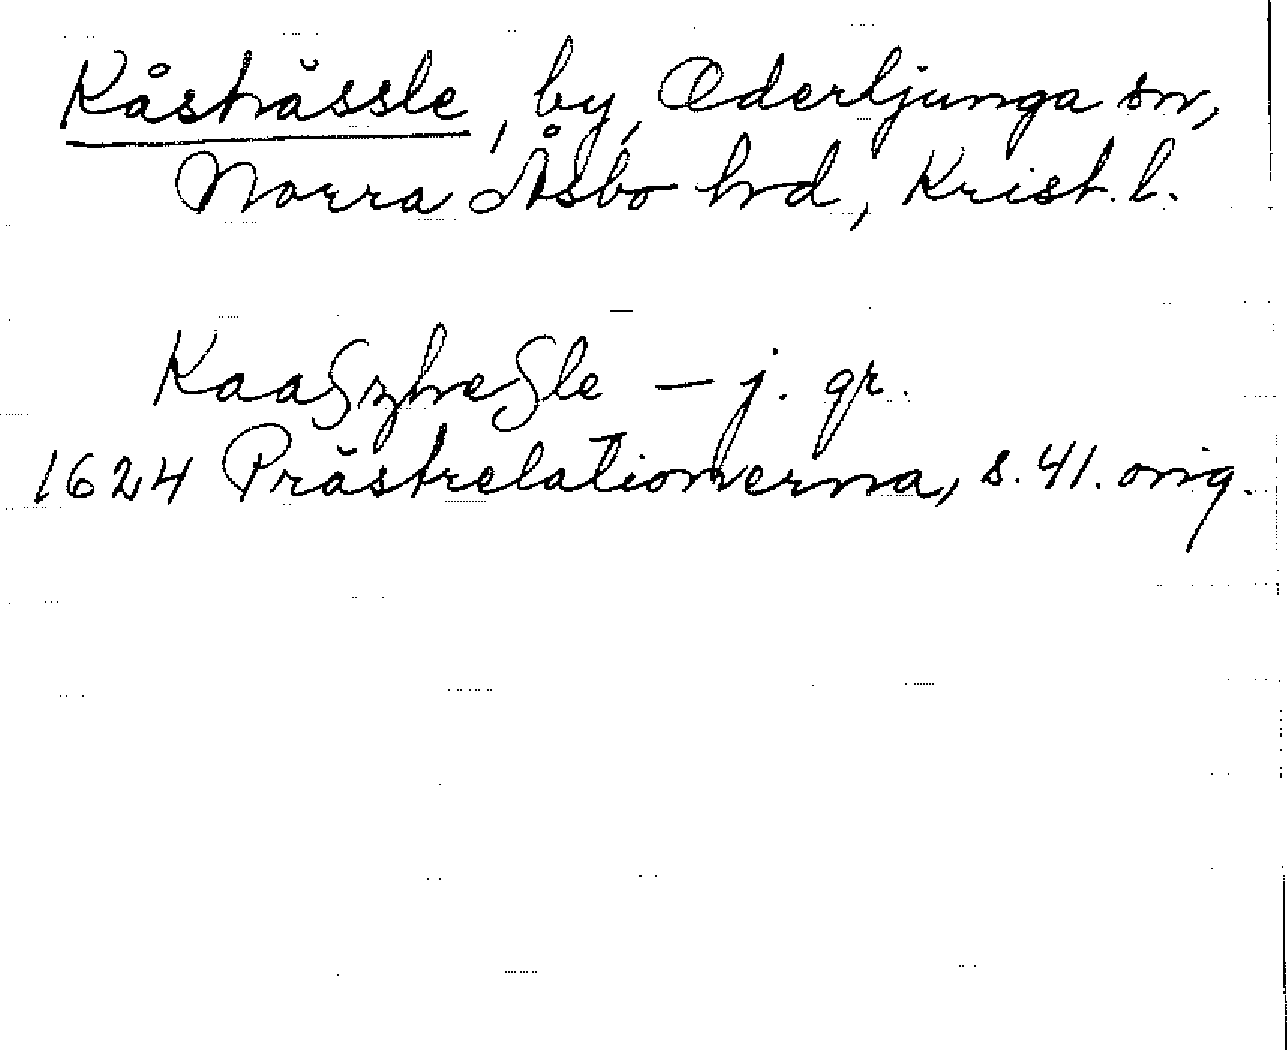 Kåshässle, by, Oderljunga sn,
Norra Åsbo hd, Krist. l.
Kaaszhesle – j. gr.
1624 Prästrelationerna, s. 41. orig.